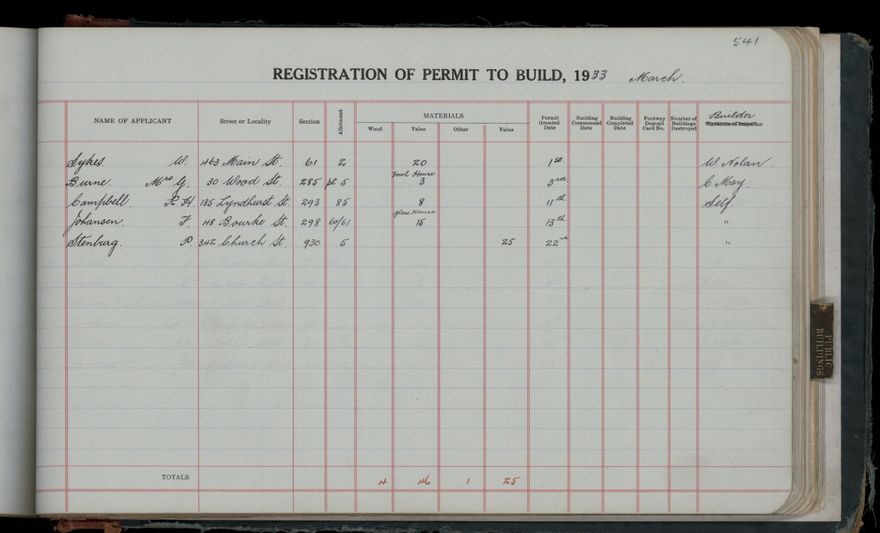 541
REGISTRATION OF PERMIT TO BUILD, 1933 March.
NAME OF APPLICANT Street or Locality Section Allotment MATERIALS Wood Value Other Value Permit Granted Date Building Commenced Date Building Completed Date Footway Deposit Card No. Number of Buildings Destroyed Builder Signature of Inspector
Sykes W. 463 Main St. 61 2 20 1st W. Nolan.
Fowl House
Burne. Mrs G. 30 Wood St. 285 pt 5 3 3rd C. May.
Campbell. R H. 135 Lyndhurst St. 293 85 8 11th Self.
Glass House
Johansen. T. 48 Bourke St. 298 60/61 15 13th "
Stenburg. P. 342 Church St. 930 5 25 22nd "
TOTALS 4 46 1 25
PUBLIC BUILDINGS